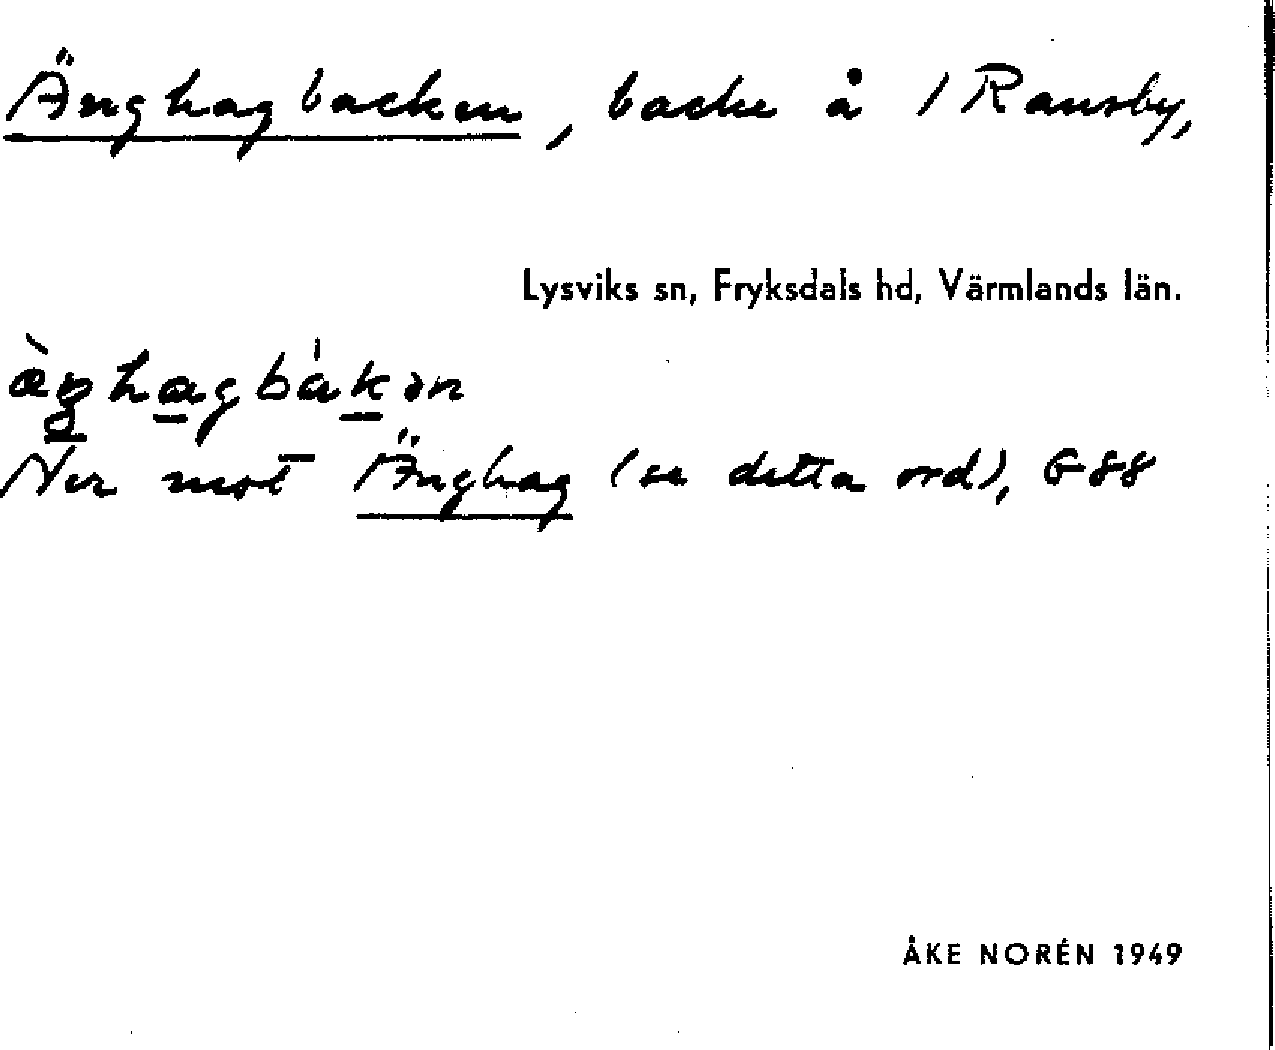 Änghagbacken, backe å 1 Ransby,
Lysviks sn, Fryksdals hd, Värmlands län.
æ̀ŋha̲gbák̲ən
Ner mot Änghag (se detta ord), G88
ÅKE NORÉN 1949